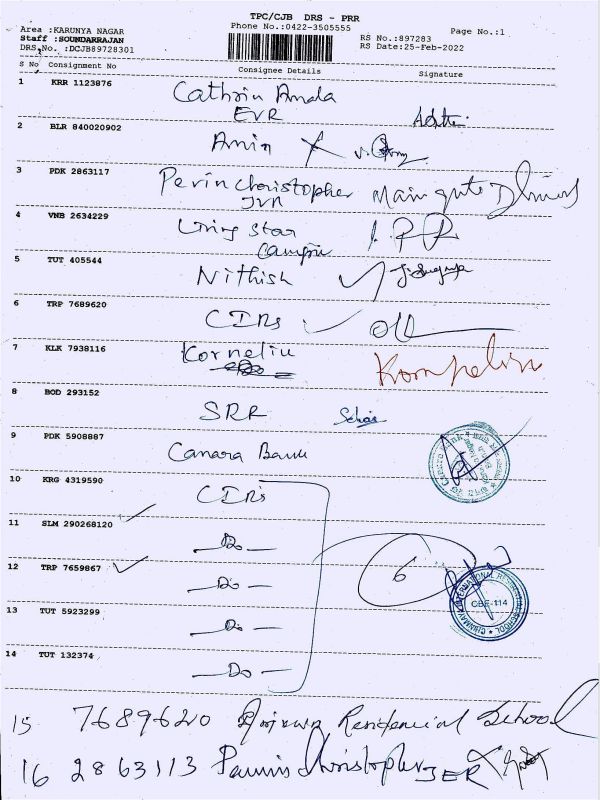 TPC/CJB DRS - PRR
Area :KARUNYA NAGAR Phone No.:0422-3505555 Page No.:1
Staff :SOUNDARRAJAN RS No.:897283
DRS No. :DCJB89728301 RS Date:25-Feb-2022
S No Consignment No Consignee Details Signature
1 KRR 1123876 Cathrin Amala
EVR
2 BLR 840020902 Amin
3 PDK 2863117 Pevin Christopher Main gate
JVR
4 VNB 2634229 Living Star
5 TUT 405544 Nithish
6 TRP 7689620 CIRs
7 KLK 7938116 Korneliu
8 BOD 293152 SRR
9 PDK 5908887 Canara Bank
10 KRG 4319590 CIR's
11 SLM 290268120 - Do -
12 TRP 7659867 - Do - 6
CBE-114
13 TUT 5923299 - Do -
14 TUT 132374 - Do -
15 7689620 Residencial School
16 2863113 Christopher JER